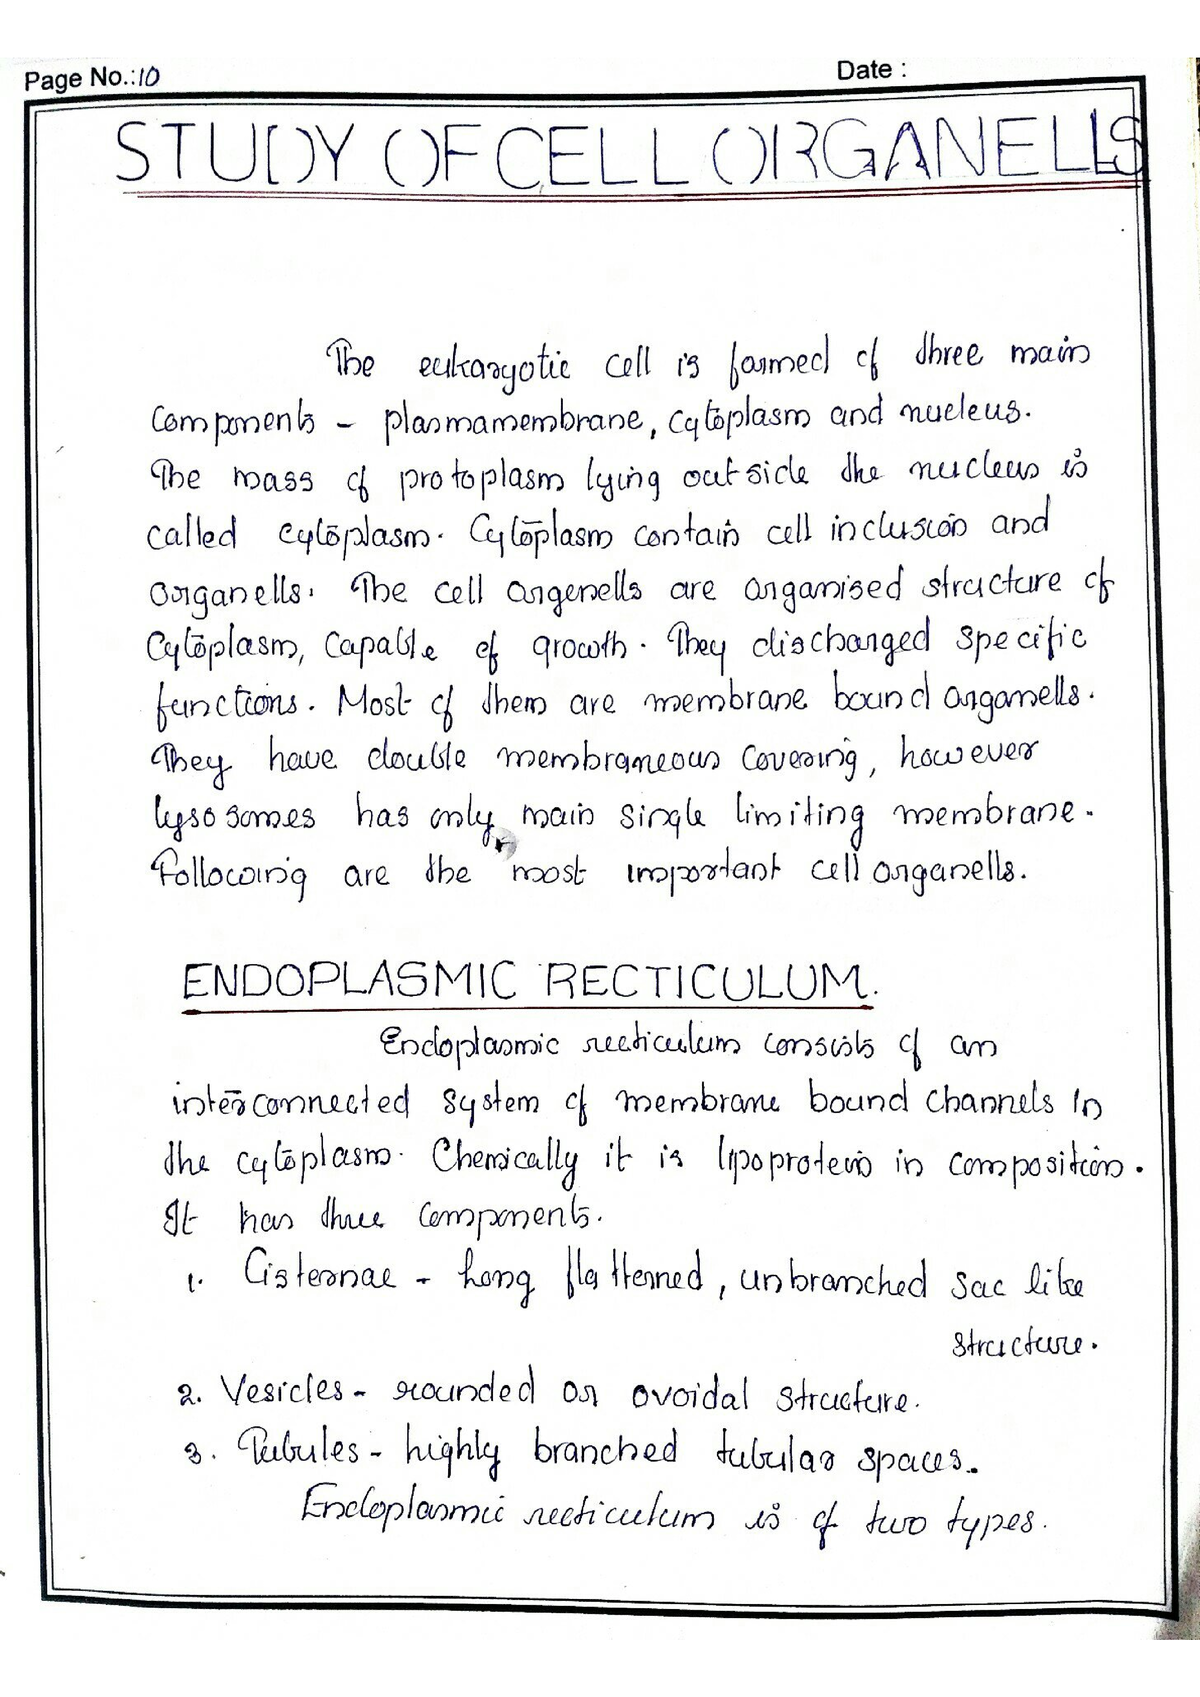 Page No.:10
Date :
STUDY OF CELL ORGANELLS
The eukaryotic cell is formed of three main
components - plasmamembrane, cytoplasm and nucleus.
The mass of protoplasm lying outside the nucleus is
called cytoplasm. Cytoplasm contain cell inclusion and
organells. The cell orgenells are organised structure of
cytoplasm, capable of growth. They discharged specific
functions. Most of them are membrane bound organells.
They have double membraneous covering, however
lysosomes has only main single limiting membrane.
Following are the most important cell organells.
ENDOPLASMIC RECTICULUM.
Endoplasmic recticulum consists of an
interconnected system of membrane bound channels in
the cytoplasm. Chemically it is lipoprotein in composition.
It has three components.
1. Cisternae - Long flatterned, unbranched sac like
structure.
2. Vesicles - rounded or ovoidal structure.
3. Tubules - highly branched tubular spaces.
Endoplasmic recticulum is of two types.